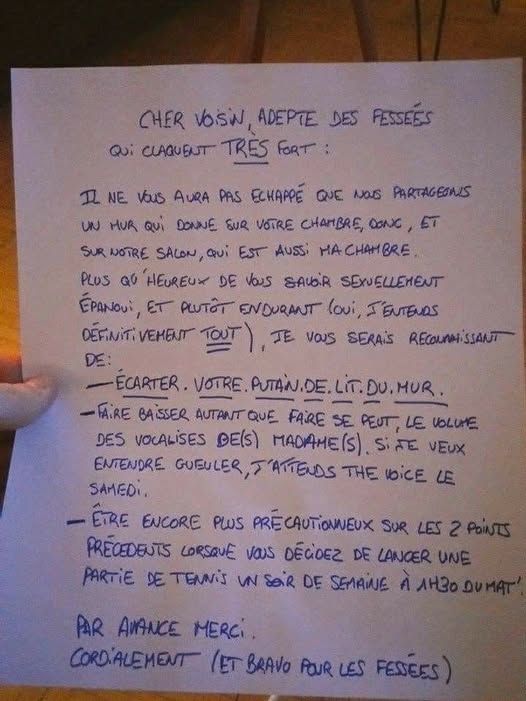 CHER VOISIN, ADEPTE DES FESSÉES
QUI CLAQUENT TRÈS FORT :
IL NE VOUS AURA PAS ECHAPPÉ QUE NOUS PARTAGEONS
UN MUR QUI DONNE SUR VOTRE CHAMBRE, DONC, ET
SUR NOTRE SALON, QUI EST AUSSI MA CHAMBRE.
PLUS QU'HEUREUX DE VOUS SAVOIR SEXUELLEMENT
ÉPANOUI, ET PLUTÔT ENDURANT (OUI, J'ENTENDS
DÉFINITIVEMENT TOUT), JE VOUS SERAIS RECONNAISSANT
DE :
- ÉCARTER. VOTRE. PUTAIN. DE. LIT. DU. MUR.
- FAIRE BAISSER AUTANT QUE FAIRE SE PEUT, LE VOLUME
DES VOCALISES DE(S) MADAME(S). SI JE VEUX
ENTENDRE GUEULER, J'ATTENDS THE VOICE LE
SAMEDI.
- ÊTRE ENCORE PLUS PRÉCAUTIONNEUX SUR LES 2 POINTS
PRÉCEDENTS LORSQUE VOUS DÉCIDEZ DE LANCER UNE
PARTIE DE TENNIS UN SOIR DE SEMAINE À 1H30 DU MAT'.
PAR AVANCE MERCI.
CORDIALEMENT (ET BRAVO POUR LES FESSÉES)